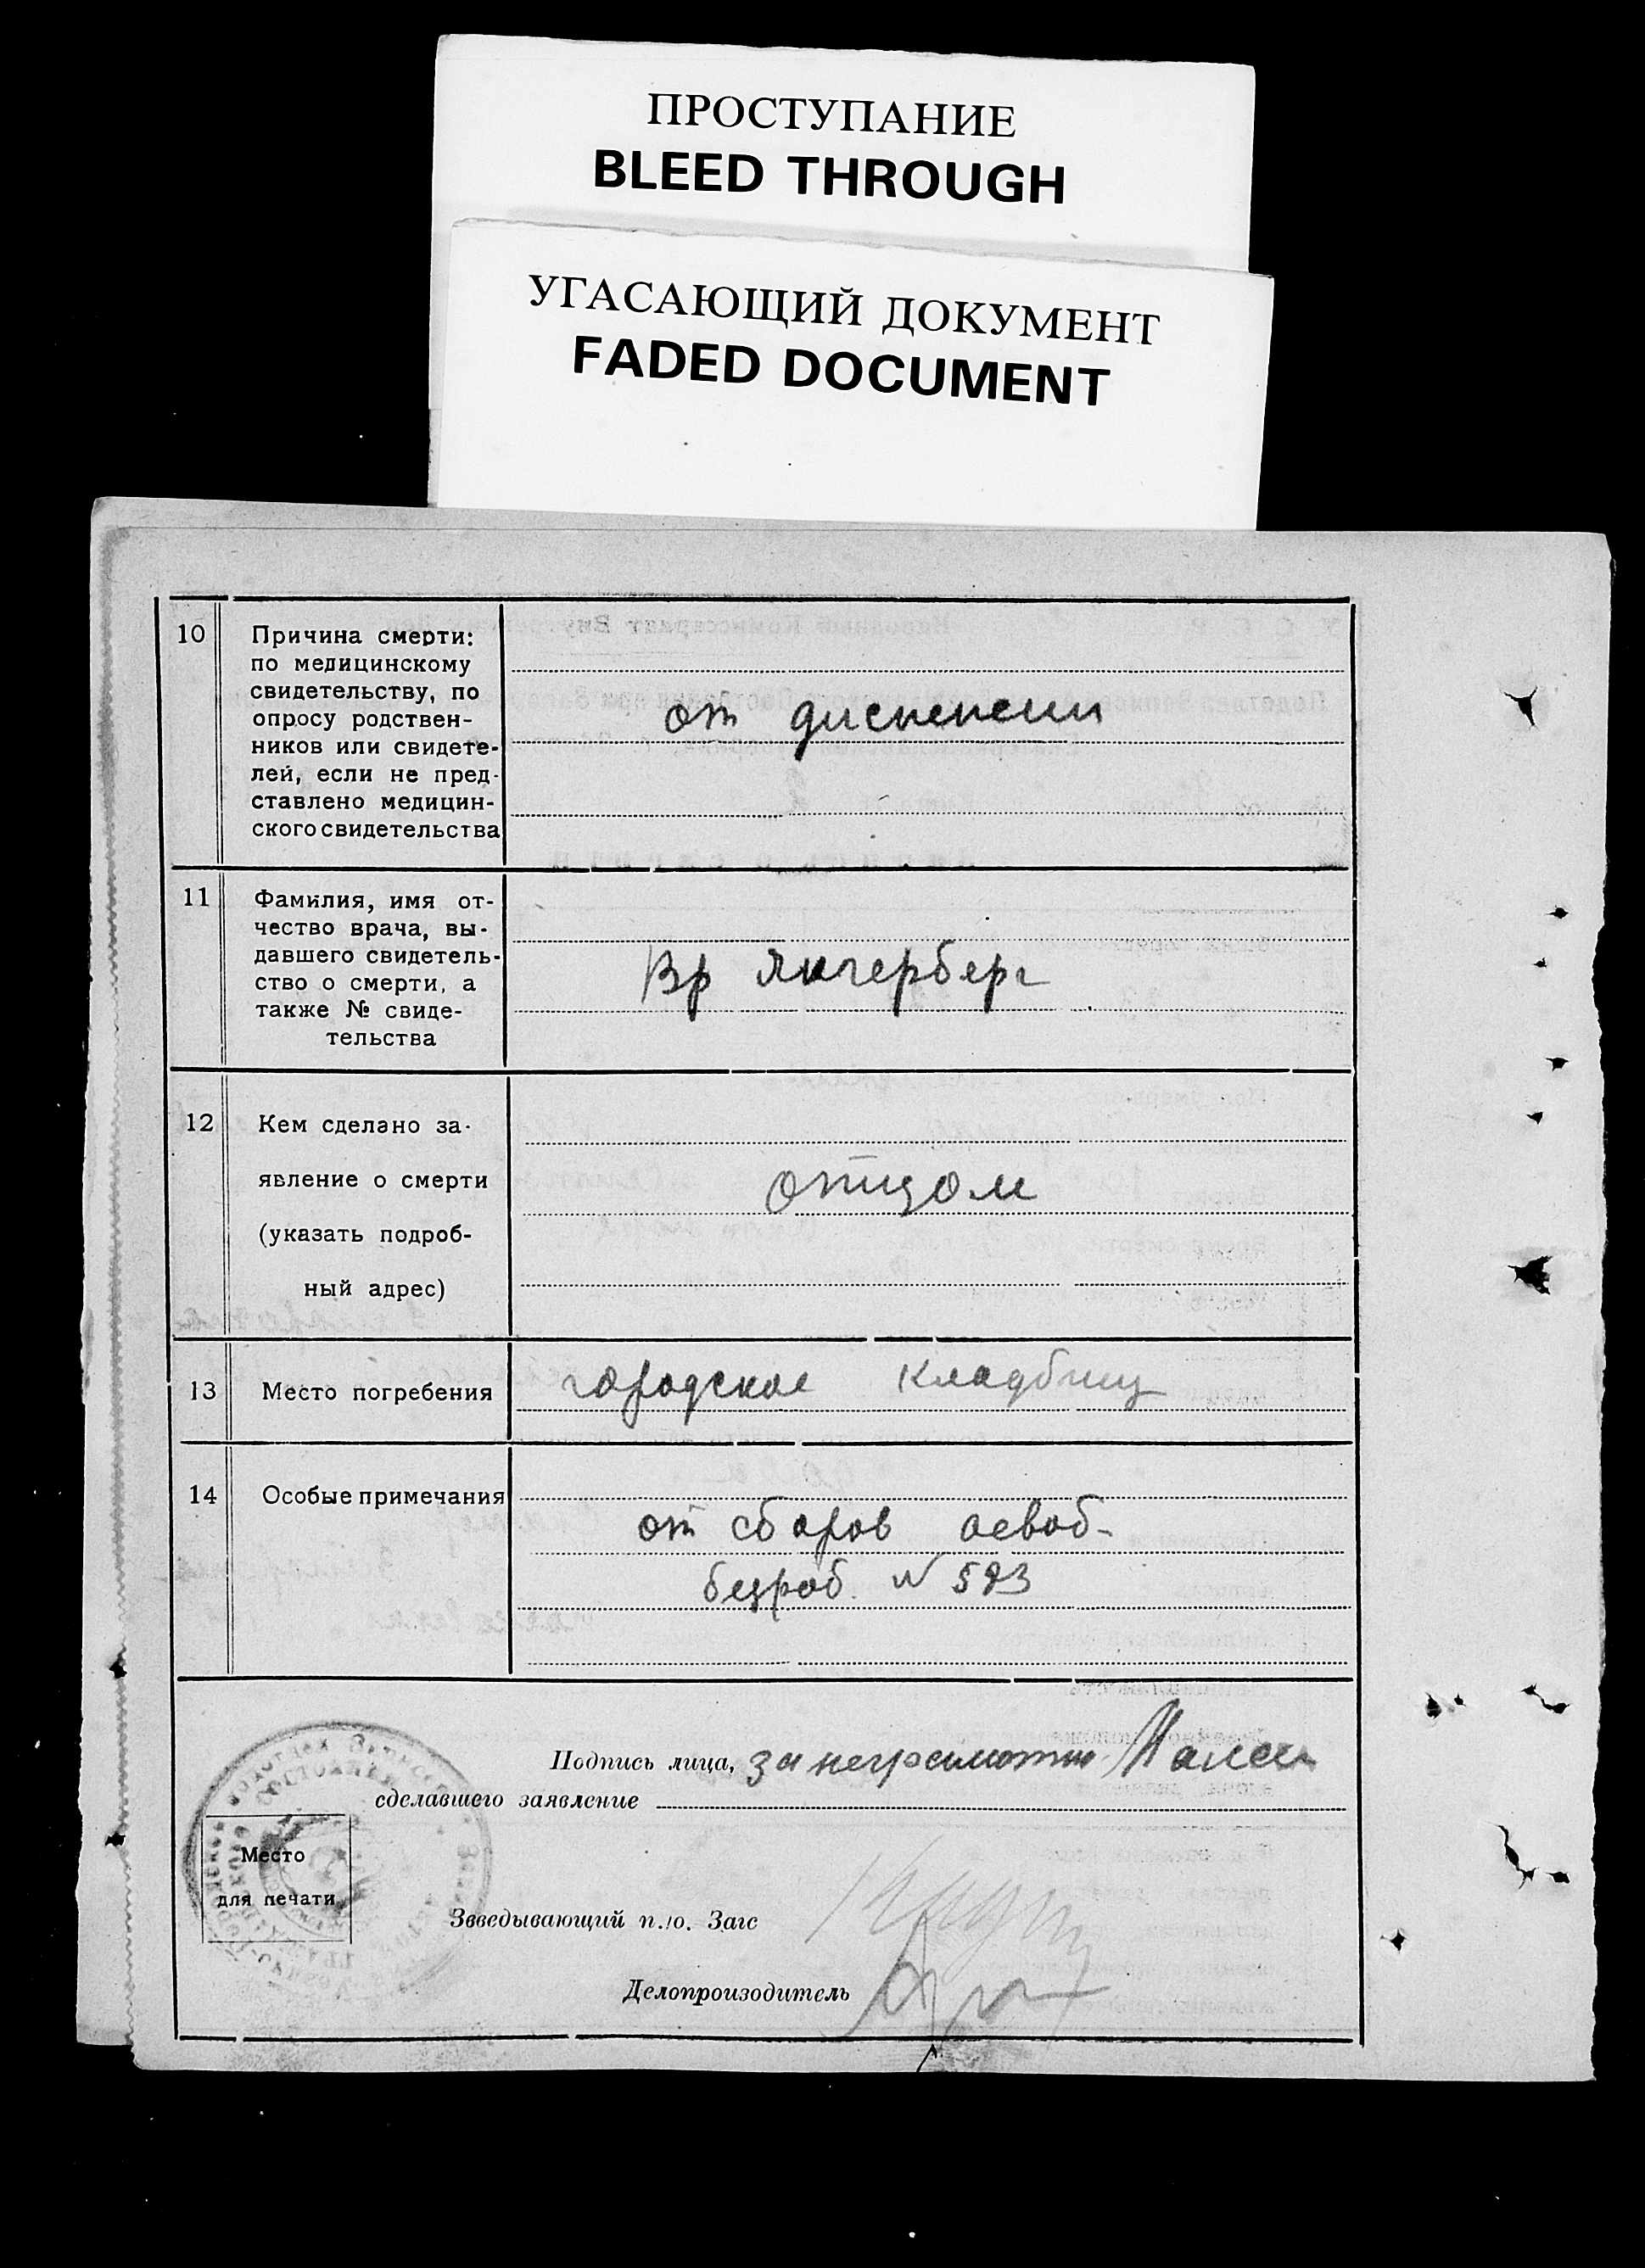 ПРОСТУПАНИЕ
BLEED THROUGH
УГАСАЮЩИЙ ДОКУМЕНТ
FADED DOCUMENT
10
Причина смерти:
по медицинскому
свидетельству, по
опросу родствен-
ников или свидете-
лей, если не пред-
ставлено медицин-
ского свидетельства
от диспепсии
11
Фамилия, имя от-
чество врача, вы-
давшего свидетель-
ство о смерти, а
также № свиде-
тельства
Вр
12
Кем сделано за-
явление о смерти
(указать подроб-
ный адрес)
отцом
13
Место погребения
городское кладбищ
14
Особые примечания
от сборов освоб-
безроб. N 593
Подпись лица, за неграмотн
сделавшего заявление
Место
для печати
Звведывающий п./о. Загс
Делопроизводитель